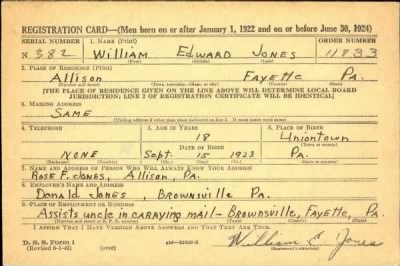 REGISTRATION CARD—(Men born on or after January 1, 1922 and on or before June 30, 1924)
SERIAL NUMBER 1. NAME (Print) ORDER NUMBER
N 382 WILLIAM EDWARD JONES 11833
(First) (Middle) (Last)
2. PLACE OF RESIDENCE (Print)
ALLISON FAYETTE PA.
(Number and street) (Town, township, village, or city) (County) (State)
[THE PLACE OF RESIDENCE GIVEN ON THE LINE ABOVE WILL DETERMINE LOCAL BOARD
JURISDICTION; LINE 2 OF REGISTRATION CERTIFICATE WILL BE IDENTICAL]
3. MAILING ADDRESS
SAME
(Mailing address if other than place indicated on line 2. If same insert word same)
4. TELEPHONE 5. AGE IN YEARS 6. PLACE OF BIRTH
18 Uniontown
DATE OF BIRTH (Town or county)
NONE Sept. 15 1923 PA.
(Exchange) (Number) (Mo.) (Day) (Yr.) (State or country)
7. NAME AND ADDRESS OF PERSON WHO WILL ALWAYS KNOW YOUR ADDRESS
ROSE F. JONES, ALLISON, PA.
8. EMPLOYER'S NAME AND ADDRESS
DONALD JONES, BROWNSVILLE PA.
9. PLACE OF EMPLOYMENT OR BUSINESS
Assists uncle in carrying mail - BROWNSVILLE, FAYETTE, PA.
(Number and street or R. F. D. number) (Town) (County) (State)
I AFFIRM THAT I HAVE VERIFIED ABOVE ANSWERS AND THAT THEY ARE TRUE.
D. S. S. Form 1
(Revised 6-1-42) (over) William E. Jones
(Registrant's signature)